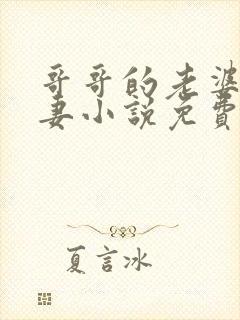 哥哥的老婆
妻小說免費
夏言冰